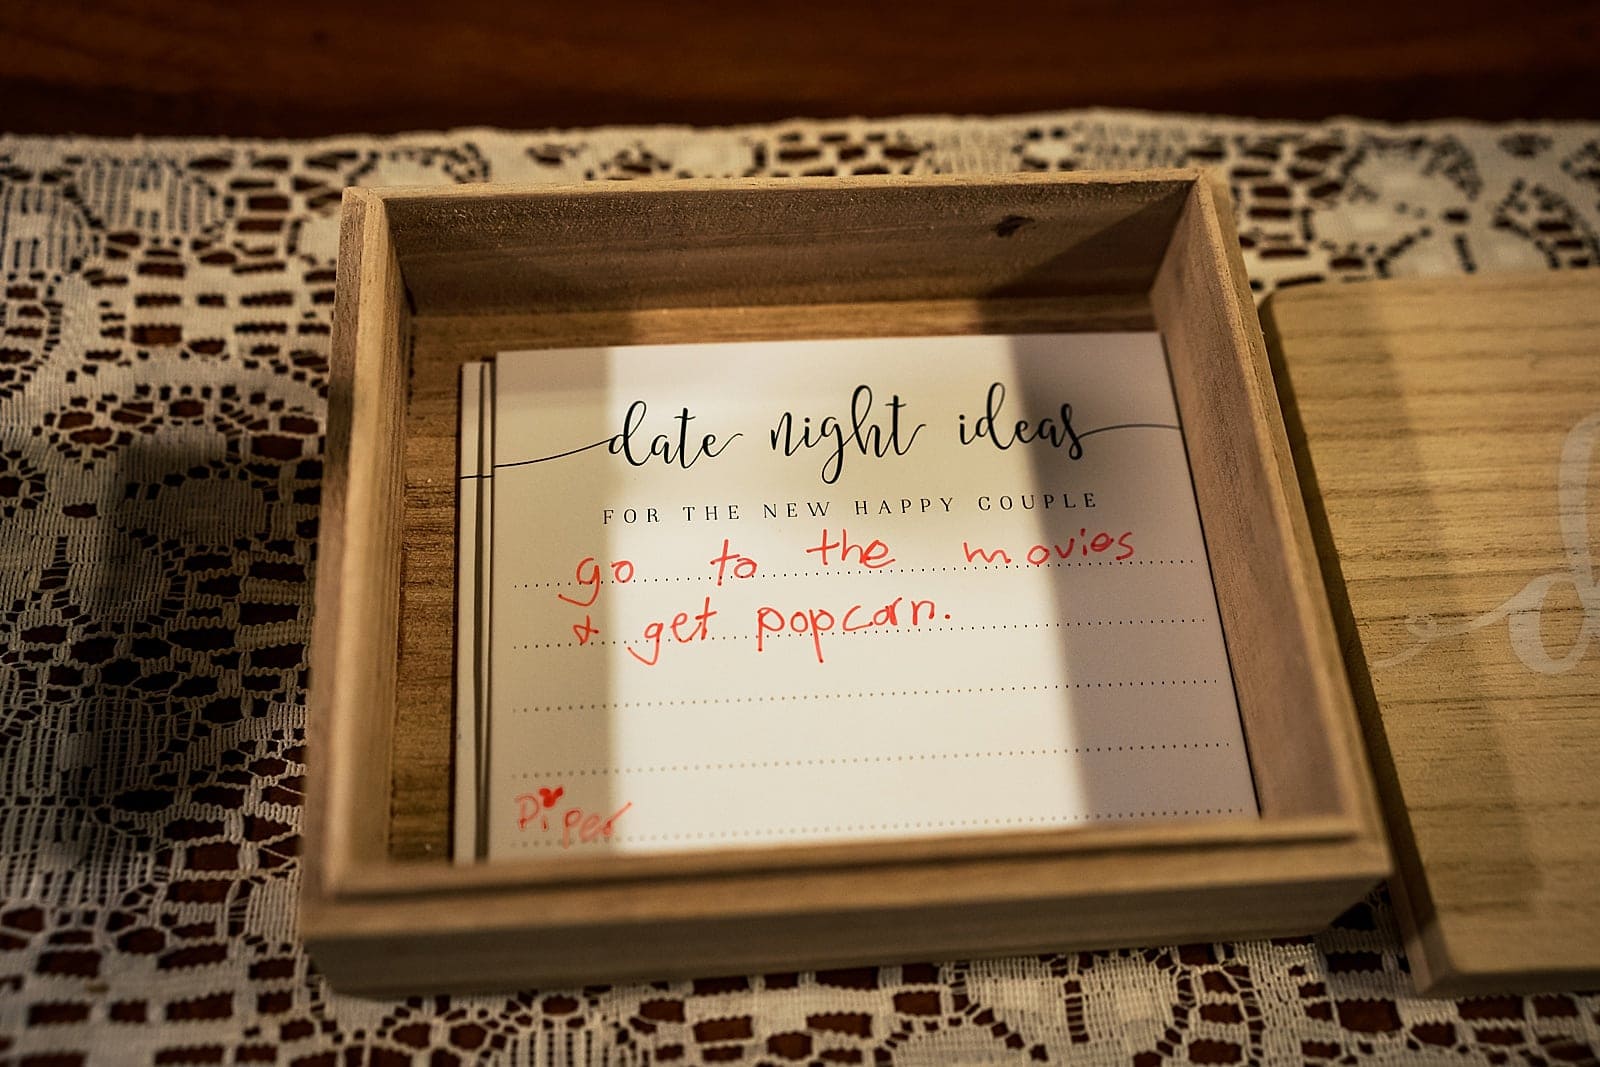 date night ideas
FOR THE NEW HAPPY COUPLE
go to the movies
& get popcorn.
Piper
d